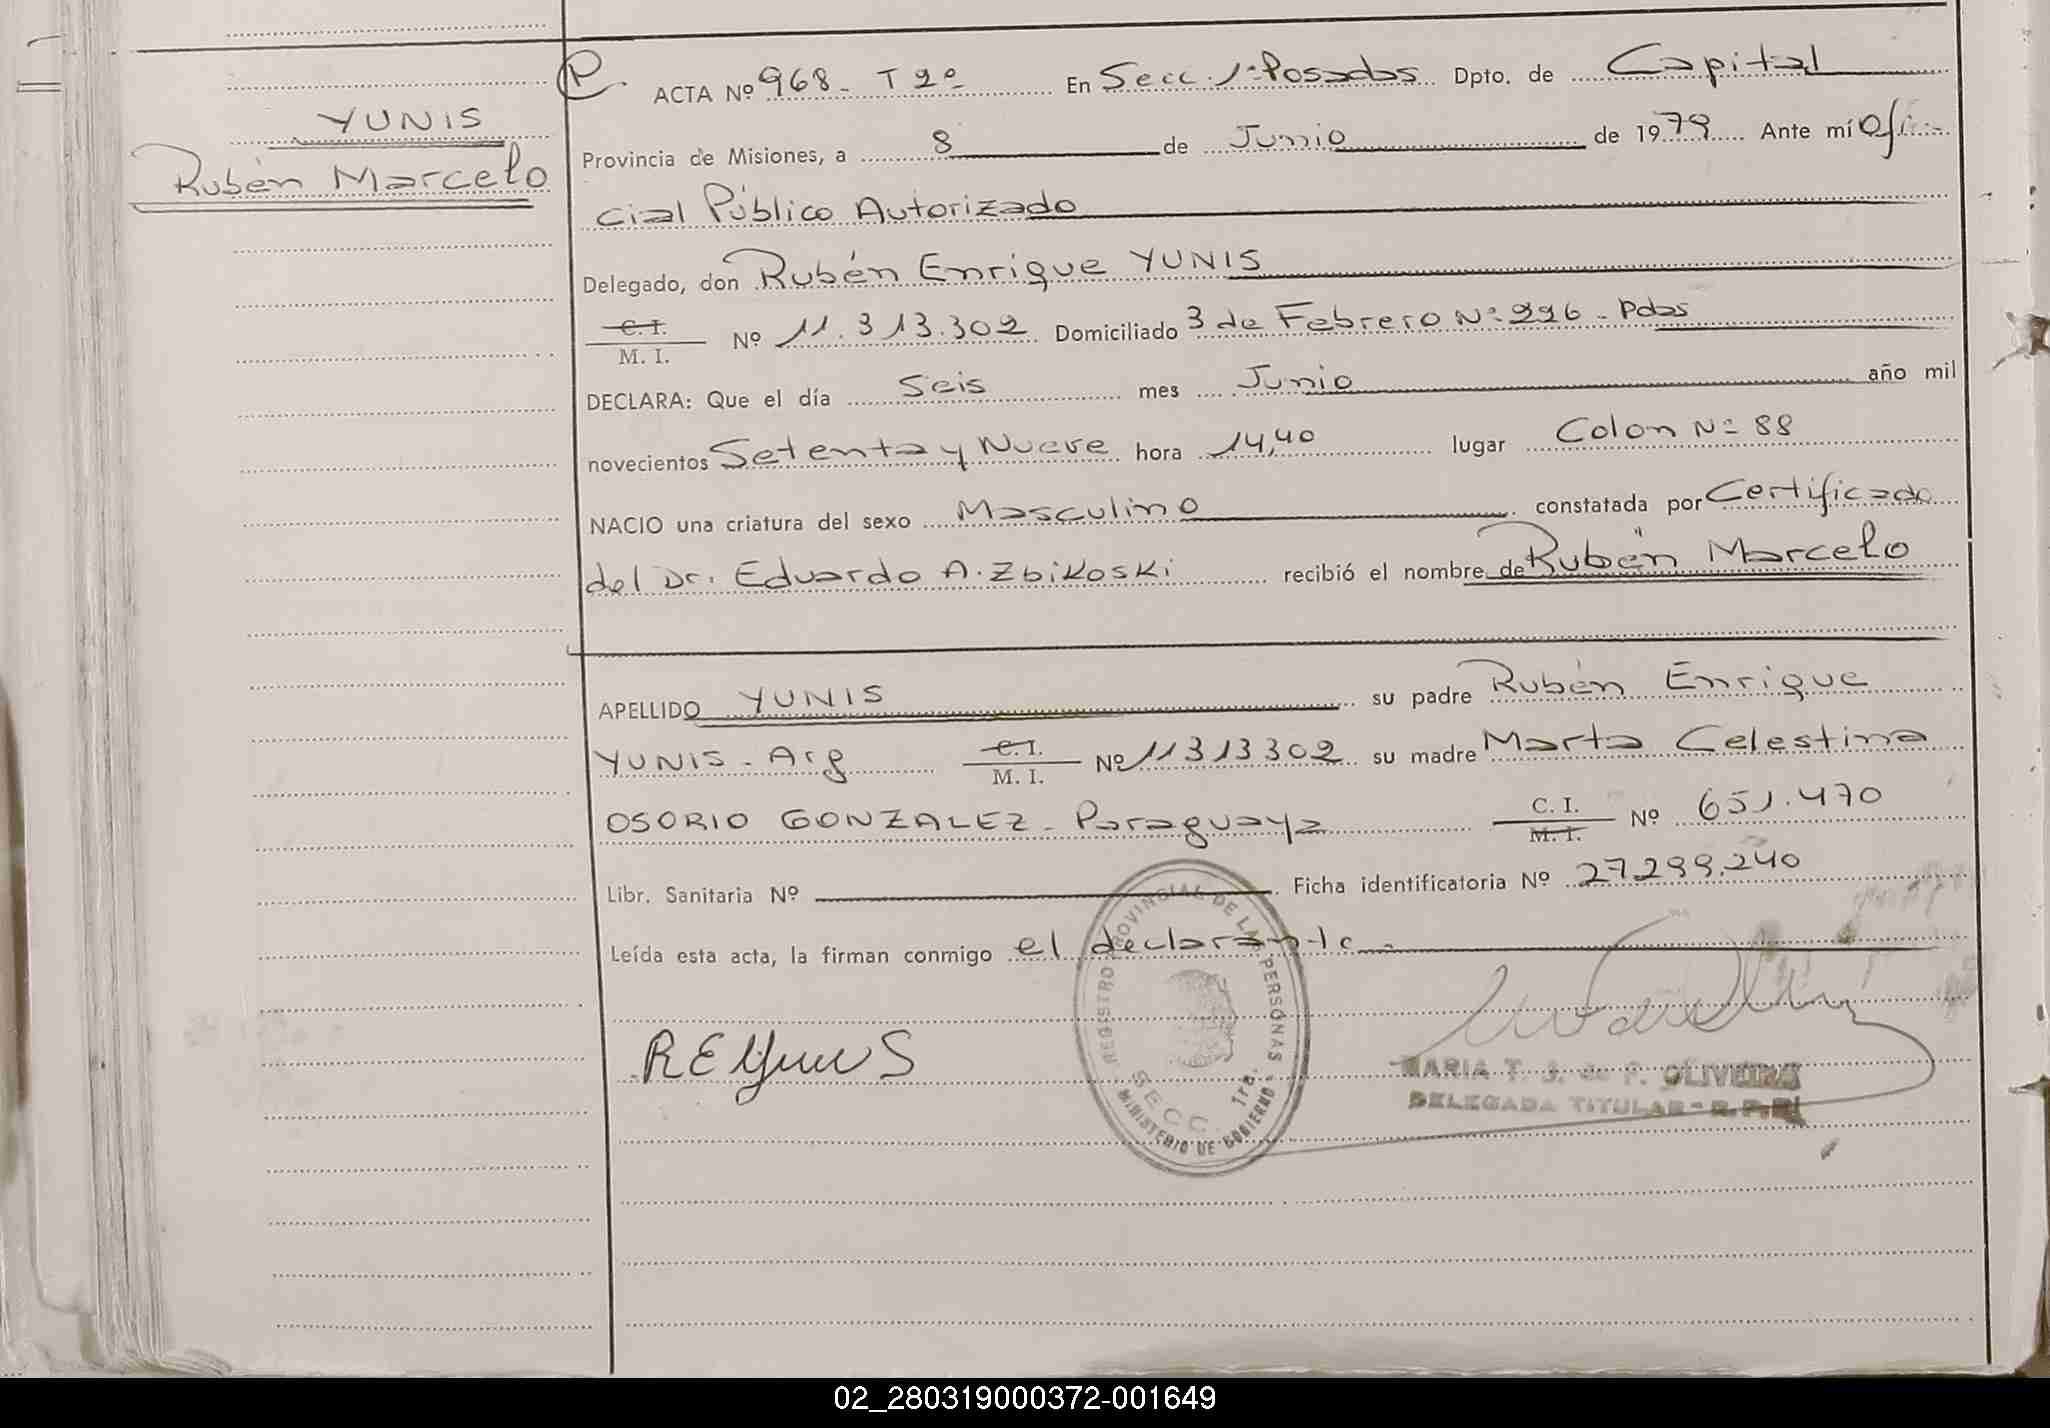 YUNIS
Rubén Marcelo
P
ACTA Nº 968 - T 2º En Secc. 1ª Posadas Dpto. de Capital
Provincia de Misiones, a 8 de Junio de 1979 Ante mí Ofi-
cial Público Autorizado
Delegado, don Rubén Enrique YUNIS
C. I.
M. I. Nº 11.313.302 Domiciliado 3 de Febrero Nº 226 - Pdas
DECLARA: Que el día Seis mes Junio año mil
novecientos Setenta y Nueve hora 14,40 lugar Colon Nº 88
NACIO una criatura del sexo Masculino constatada por Certificado
del Dr. Eduardo A. Zbikoski recibió el nombre de Rubén Marcelo
APELLIDO YUNIS su padre Rubén Enrique
YUNIS - Arg C. I. M. I. Nº 11313302 su madre Marta Celestina
OSORIO GONZALEZ - Paraguaya C. I. M. I. Nº 651.470
Libr. Sanitaria Nº Ficha identificatoria Nº 27.299.240
Leída esta acta, la firman conmigo el declarante -
REYunis
REGISTRO PROVINCIAL DE LAS PERSONAS
SECC. 1ra.
MINISTERIO DE GOBIERNO
MARIA T. J. de F. OLIVEIRA
DELEGADA TITULAR - R. P. P.
02_280319000372-001649